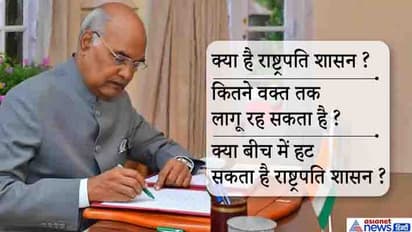 क्या है राष्ट्रपति शासन ?
कितने वक्त तक
लागू रह सकता है ?
क्या बीच में हट
सकता है राष्ट्रपति शासन ?
asianet
news हिन्दी